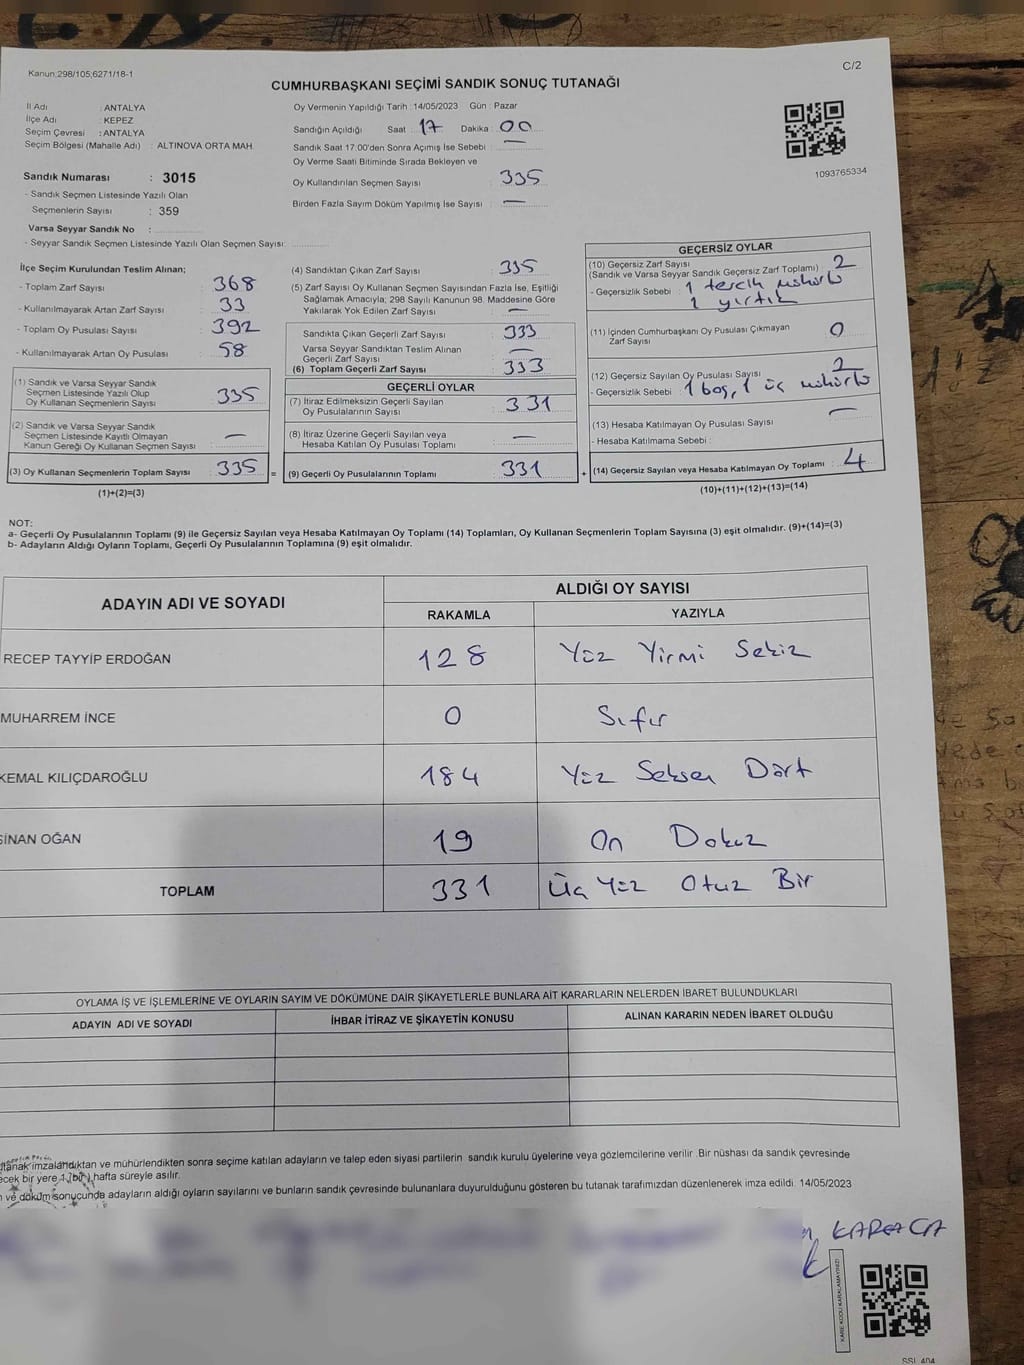 Kanun;298/105;6271/18-1
C/2
CUMHURBAŞKANI SEÇİMİ SANDIK SONUÇ TUTANAĞI
İl Adı : ANTALYA
İlçe Adı : KEPEZ
Seçim Çevresi : ANTALYA
Seçim Bölgesi (Mahalle Adı) : ALTINOVA ORTA MAH.
Sandık Numarası : 3015
- Sandık Seçmen Listesinde Yazılı Olan
Seçmenlerin Sayısı : 359
Varsa Seyyar Sandık No :
- Seyyar Sandık Seçmen Listesinde Yazılı Olan Seçmen Sayısı:
Oy Vermenin Yapıldığı Tarih : 14/05/2023 Gün : Pazar
Sandığın Açıldığı Saat : 17 Dakika : 00
Sandık Saat 17.00'den Sonra Açımış İse Sebebi : —
Oy Verme Saati Bitiminde Sırada Bekleyen ve
Oy Kullandırılan Seçmen Sayısı : 335
Birden Fazla Sayım Döküm Yapılmış İse Sayısı : —
1093765334
İlçe Seçim Kurulundan Teslim Alınan;
- Toplam Zarf Sayısı : 368
- Kullanılmayarak Artan Zarf Sayısı : 33
- Toplam Oy Pusulası Sayısı : 392
- Kullanılmayarak Artan Oy Pusulası : 58
(1) Sandık ve Varsa Seyyar Sandık
Seçmen Listesinde Yazılı Olup
Oy Kullanan Seçmenlerin Sayısı : 335
(2) Sandık ve Varsa Seyyar Sandık
Seçmen Listesinde Kayıtlı Olmayan
Kanun Gereği Oy Kullanan Seçmen Sayısı : —
(3) Oy Kullanan Seçmenlerin Toplam Sayısı : 335
(1)+(2)=(3)
(4) Sandıktan Çıkan Zarf Sayısı : 335
(5) Zarf Sayısı Oy Kullanan Seçmen Sayısından Fazla İse, Eşitliği
Sağlamak Amacıyla; 298 Sayılı Kanunun 98. Maddesine Göre
Yakılarak Yok Edilen Zarf Sayısı : —
Sandıkta Çıkan Geçerli Zarf Sayısı : 333
Varsa Seyyar Sandıktan Teslim Alınan
Geçerli Zarf Sayısı : —
(6) Toplam Geçerli Zarf Sayısı : 333
GEÇERLİ OYLAR
(7) İtiraz Edilmeksizin Geçerli Sayılan
Oy Pusulalarının Sayısı : 331
(8) İtiraz Üzerine Geçerli Sayılan veya
Hesaba Katılan Oy Pusulası Toplamı : —
= (9) Geçerli Oy Pusulalarının Toplamı : 331 +
GEÇERSİZ OYLAR
(10) Geçersiz Zarf Sayısı
(Sandık ve Varsa Seyyar Sandık Geçersiz Zarf Toplamı) : 2
- Geçersizlik Sebebi : 1 tercih mühürlü
1 yırtık
(11) İçinden Cumhurbaşkanı Oy Pusulası Çıkmayan
Zarf Sayısı : 0
(12) Geçersiz Sayılan Oy Pusulası Sayısı : 2
- Geçersizlik Sebebi : 1 boş, 1 üç mühürlü
(13) Hesaba Katılmayan Oy Pusulası Sayısı : —
- Hesaba Katılmama Sebebi :
(14) Geçersiz Sayılan veya Hesaba Katılmayan Oy Toplamı : 4
(10)+(11)+(12)+(13)=(14)
NOT:
a- Geçerli Oy Pusulalarının Toplamı (9) ile Geçersiz Sayılan veya Hesaba Katılmayan Oy Toplamı (14) Toplamları, Oy Kullanan Seçmenlerin Toplam Sayısına (3) eşit olmalıdır. (9)+(14)=(3)
b- Adayların Aldığı Oyların Toplamı, Geçerli Oy Pusulalarının Toplamına (9) eşit olmalıdır.
ADAYIN ADI VE SOYADI
ALDIĞI OY SAYISI
RAKAMLA YAZIYLA
RECEP TAYYİP ERDOĞAN 128 Yüz Yirmi Sekiz
MUHARREM İNCE 0 Sıfır
KEMAL KILIÇDAROĞLU 184 Yüz Seksen Dört
SİNAN OĞAN 19 On Dokuz
TOPLAM 331 Üç Yüz Otuz Bir
OYLAMA İŞ VE İŞLEMLERİNE VE OYLARIN SAYIM VE DÖKÜMÜNE DAİR ŞİKAYETLERLE BUNLARA AİT KARARLARIN NELERDEN İBARET BULUNDUKLARI
ADAYIN ADI VE SOYADI İHBAR İTİRAZ VE ŞİKAYETİN KONUSU ALINAN KARARIN NEDEN İBARET OLDUĞU
imzalandıktan ve mühürlendikten sonra seçime katılan adayların ve talep eden siyasi partilerin sandık kurulu üyelerine veya gözlemcilerine verilir .Bir nüshası da sandık çevresinde
bir yere 1 (bir) hafta süreyle asılır.
ve döküm sonucunda adayların aldığı oyların sayılarını ve bunların sandık çevresinde bulunanlara duyurulduğunu gösteren bu tutanak tarafımızdan düzenlenerek imza edildi. 14/05/2023
KARACA
KARE KODU KARALAMAYINIZ!
SSL 404